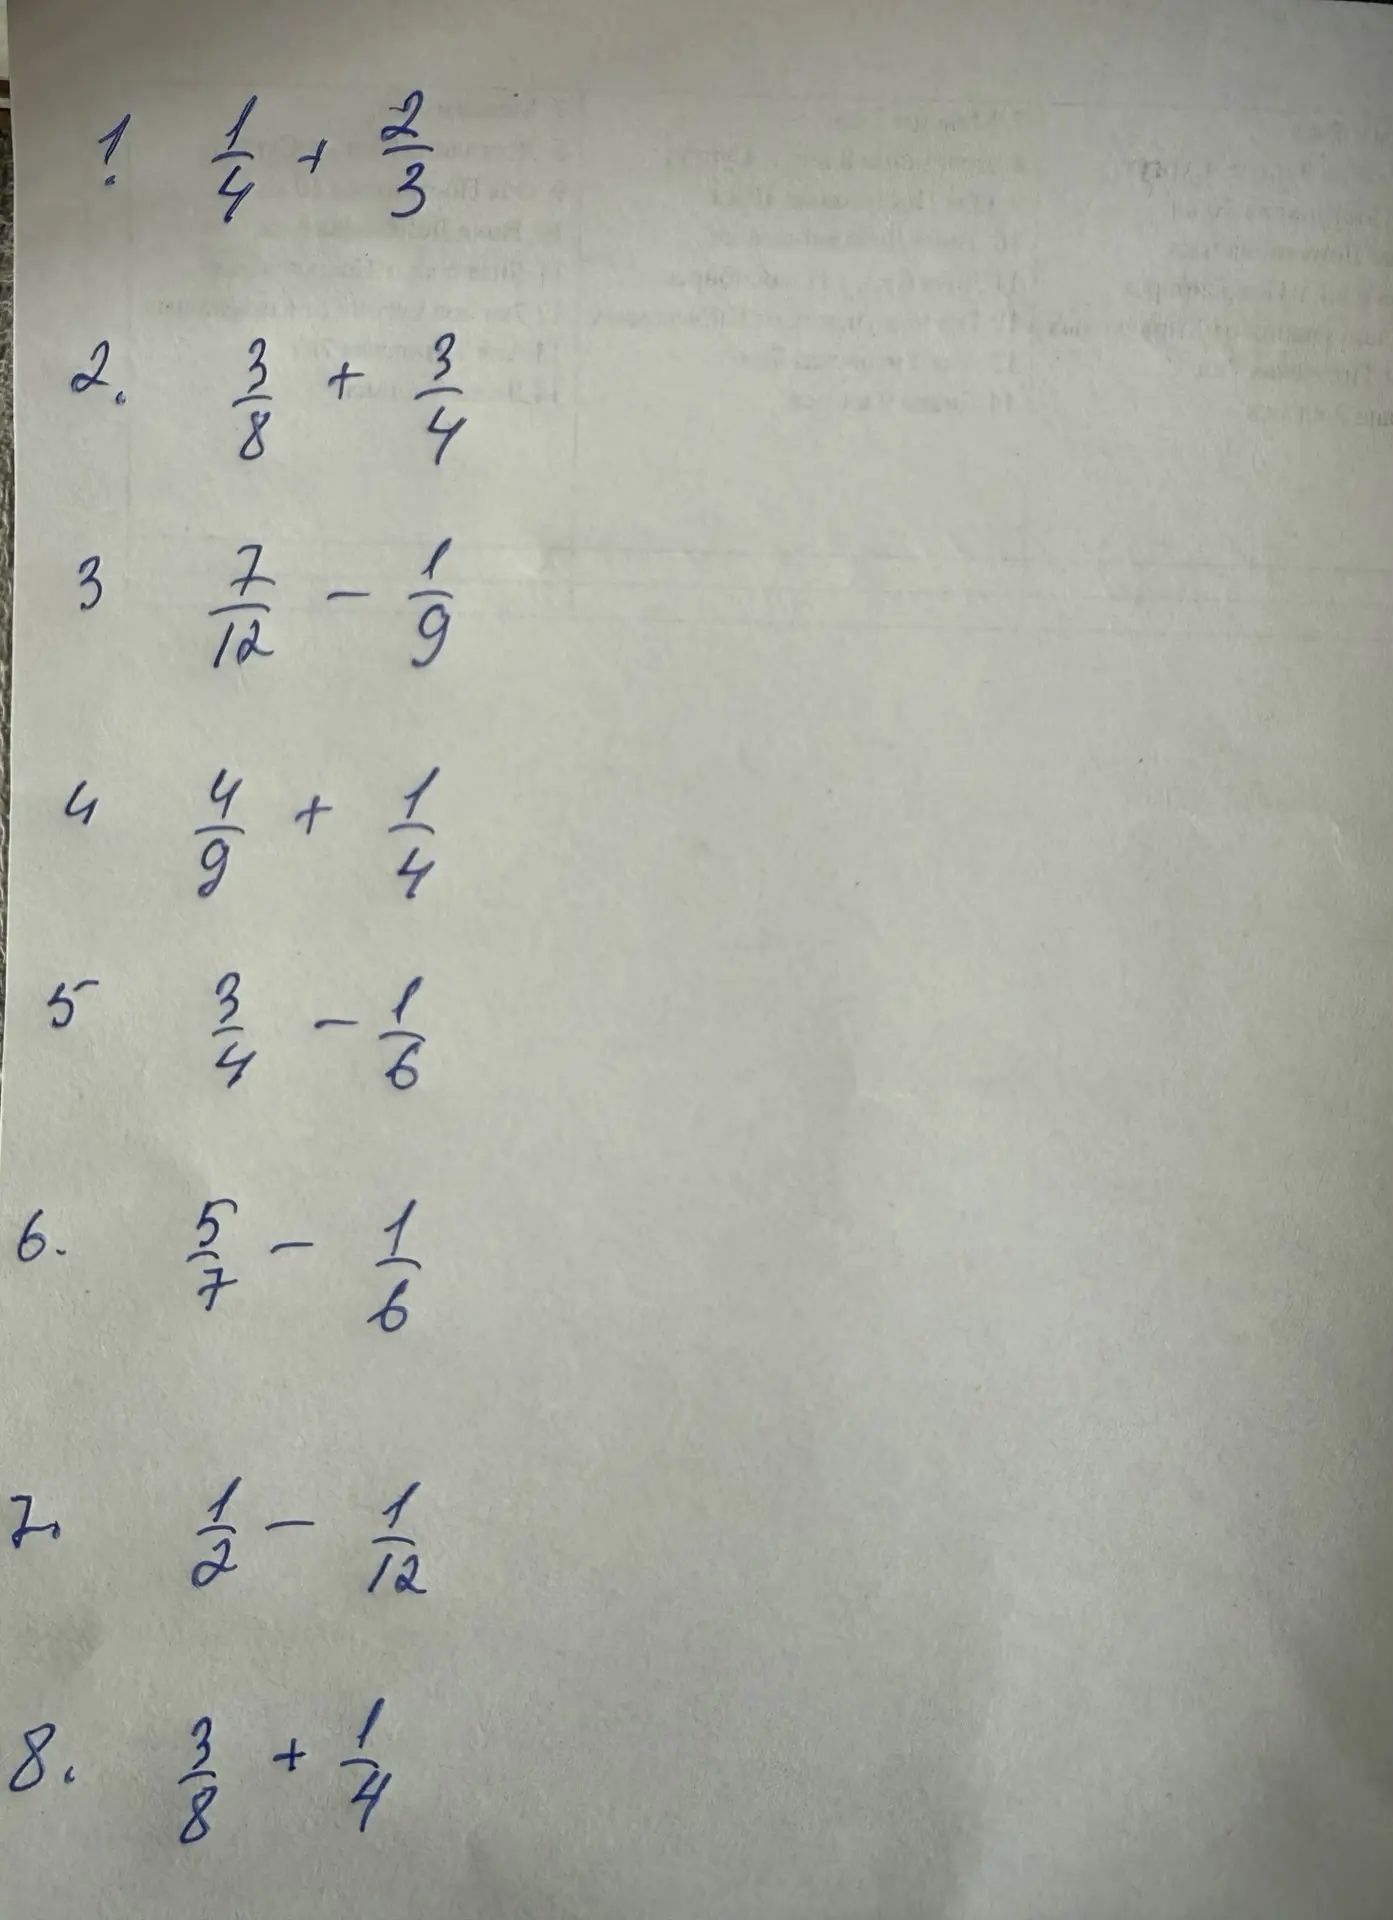 1. 1/4 + 2/3
2. 3/8 + 3/4
3 7/12 - 1/9
4 4/9 + 1/4
5 3/4 - 1/6
6. 5/7 - 1/6
7. 1/2 - 1/12
8. 3/8 + 1/4